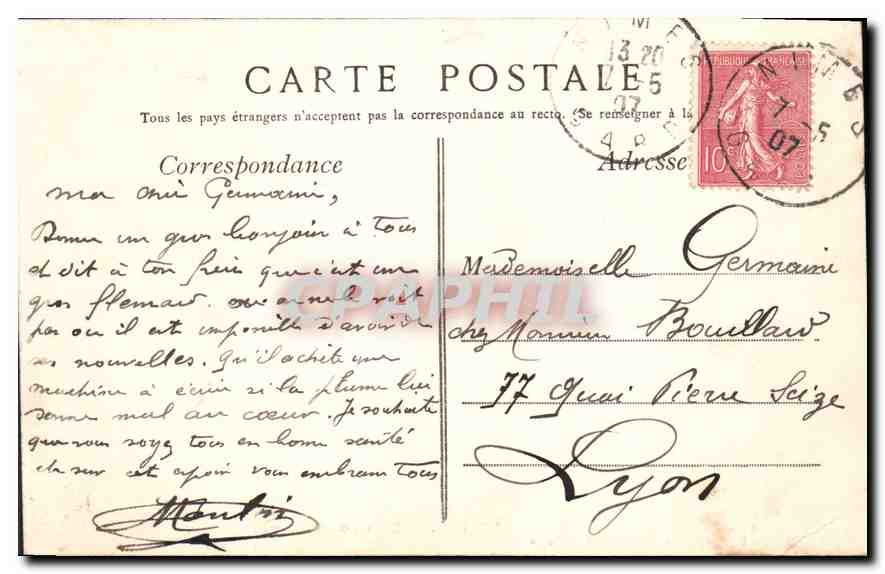 CARTE POSTALE
Tous les pays étrangers n'acceptent pas la correspondance au recto. (Se renseigner à la
Correspondance
Adresse
RÉPUBLIQUE FRANÇAISE
10c
NIMES
13 20
7 5
07
GARE
NIMES
7 5
07
ma chère Germaine,
Donne un gros bonjour à tous
et dit à ton frère que c'est un
gros flemard. on ne sait
pas ou il est impossible d'avoir de
ses nouvelles. Qu'il achète une
machine à écrire si la plume lui
donne mal au cœur. Je souhaite
que vous soyez tous en bonne santé
et sur cet espoir vous embrasse tous
Moulin
Mademoiselle Germaine
chez Monsieur Bouillard
77 Quai Pierre Scize
Lyon
CPAPHIL